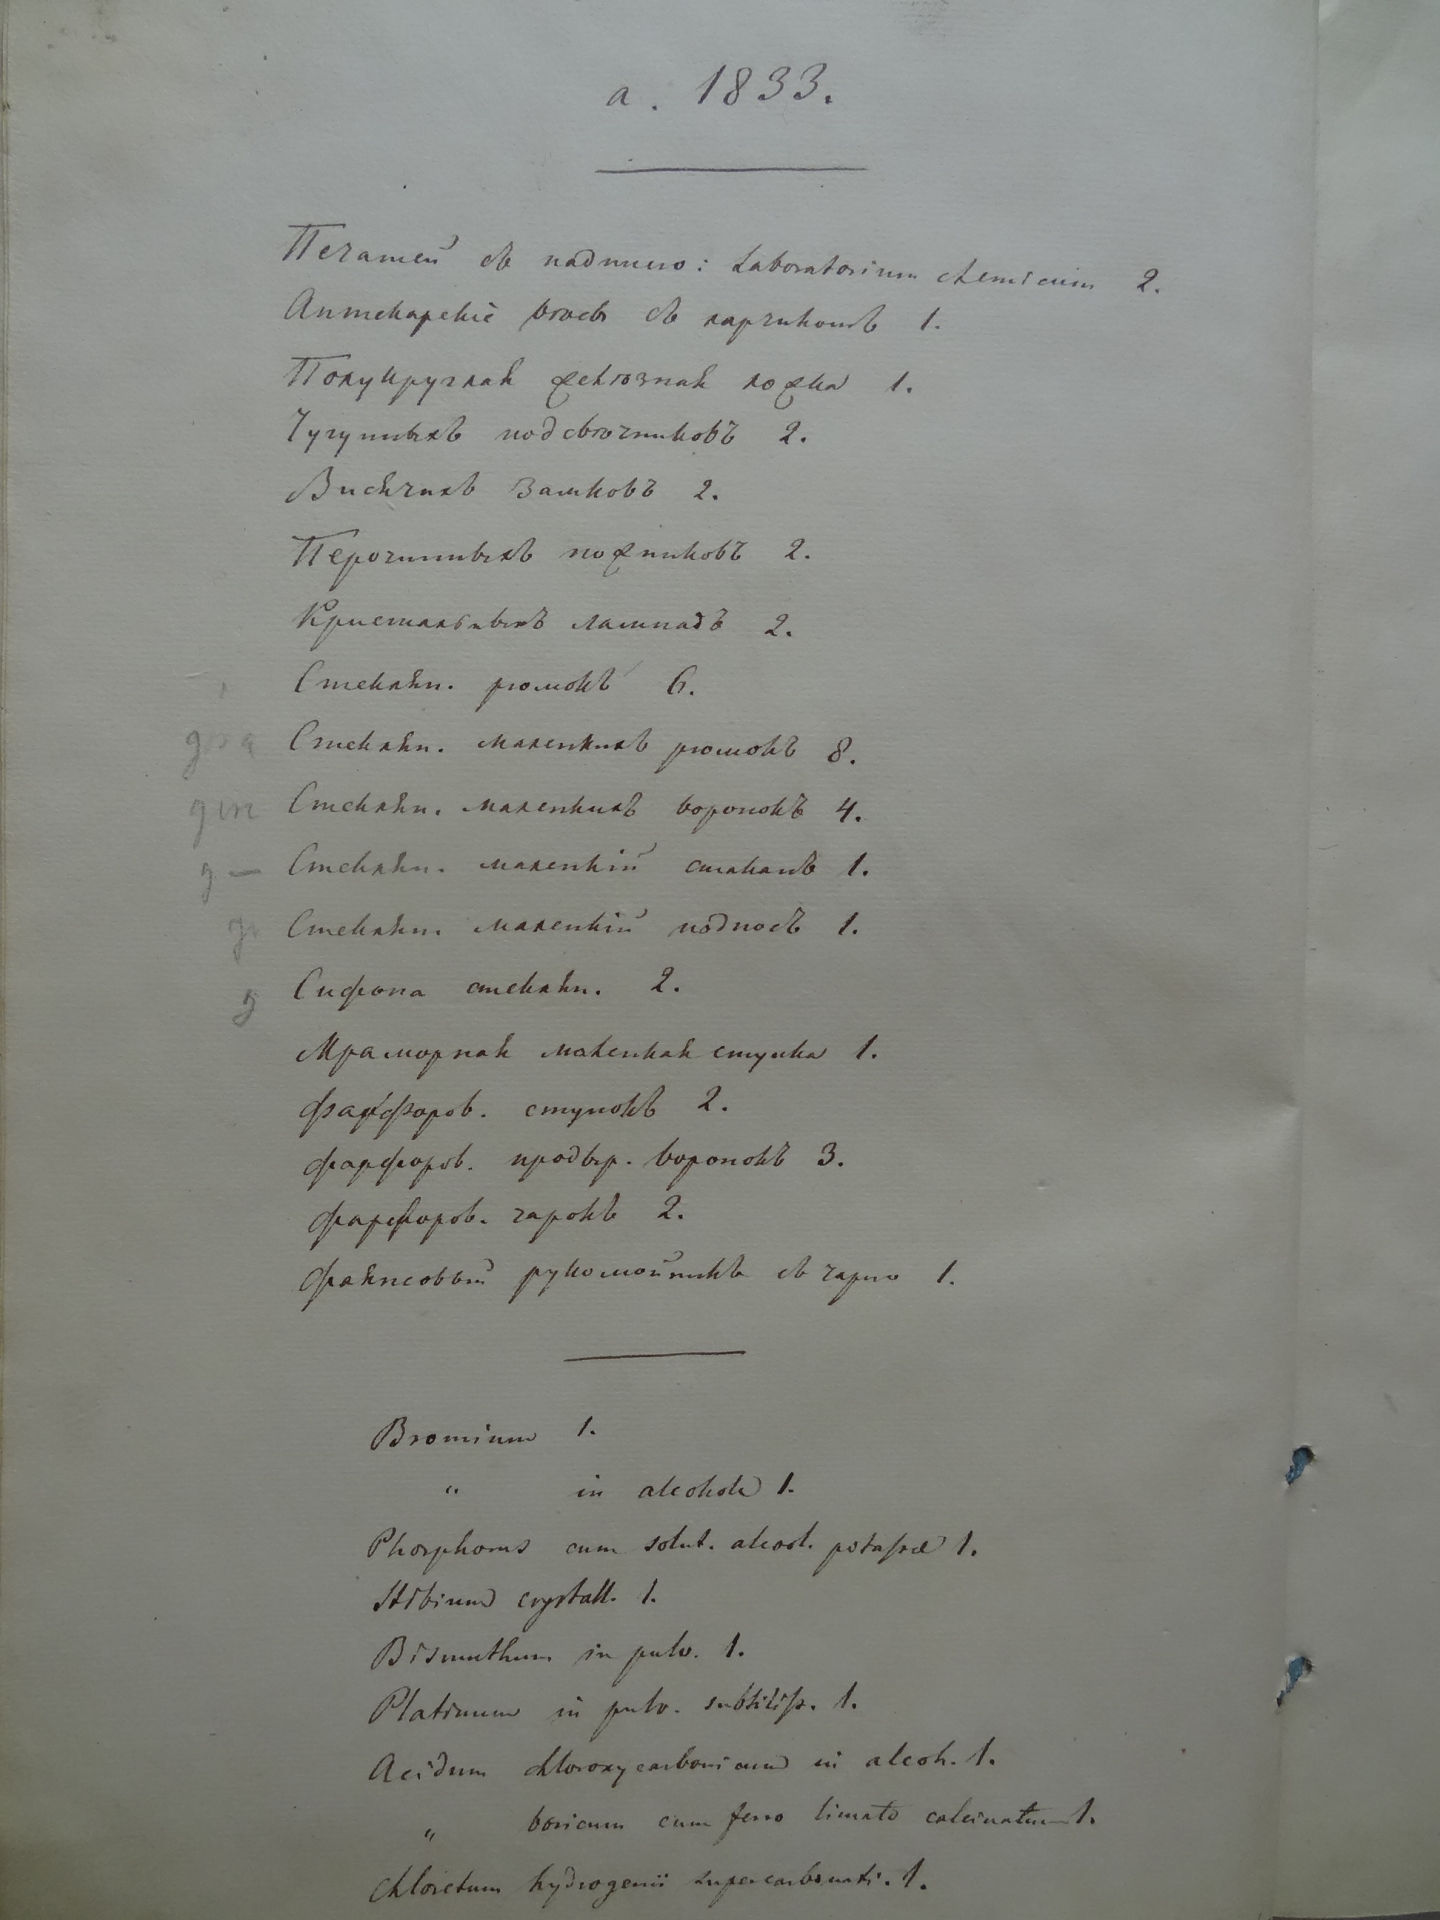 a. 1833.
Печатей съ надписью: Laboratorium chemicum 2.
Аптекарскіе вѣсы съ ларчикомъ 1.
Полукруглая желѣзная ложка 1.
Чугунныхъ подсвѣчниковъ 2.
Висячихъ замковъ 2.
Перочинныхъ ножниковъ 2.
Кристальныхъ лампадъ 2.
Стеклян. рюмокъ 6.
Стеклян. маленкихъ рюмокъ 8.
Стеклян. маленкихъ воронокъ 4.
Стеклян. маленкій стаканъ 1.
Стеклян. маленкій подносъ 1.
Сифона стеклян. 2.
Мраморная маленкая ступка 1.
Фарфоров. ступокъ 2.
Фарфоров. продыр. воронокъ 3.
Фарфоров. чарокъ 2.
Фаянсовый рукомойникъ съ чарою 1.
Bromium 1.
" in alcohole 1.
Phosphorus cum solut. alcool. potassæ 1.
Stibium crystall. 1.
Bismuthum in pulv. 1.
Platinum in pulv. subtiliss. 1.
Acidum chloroxycarbonicum in alcoh. 1.
" boricum cum ferro limato calcinatum 1.
Chloretum hydrogenii supercarbonati. 1.